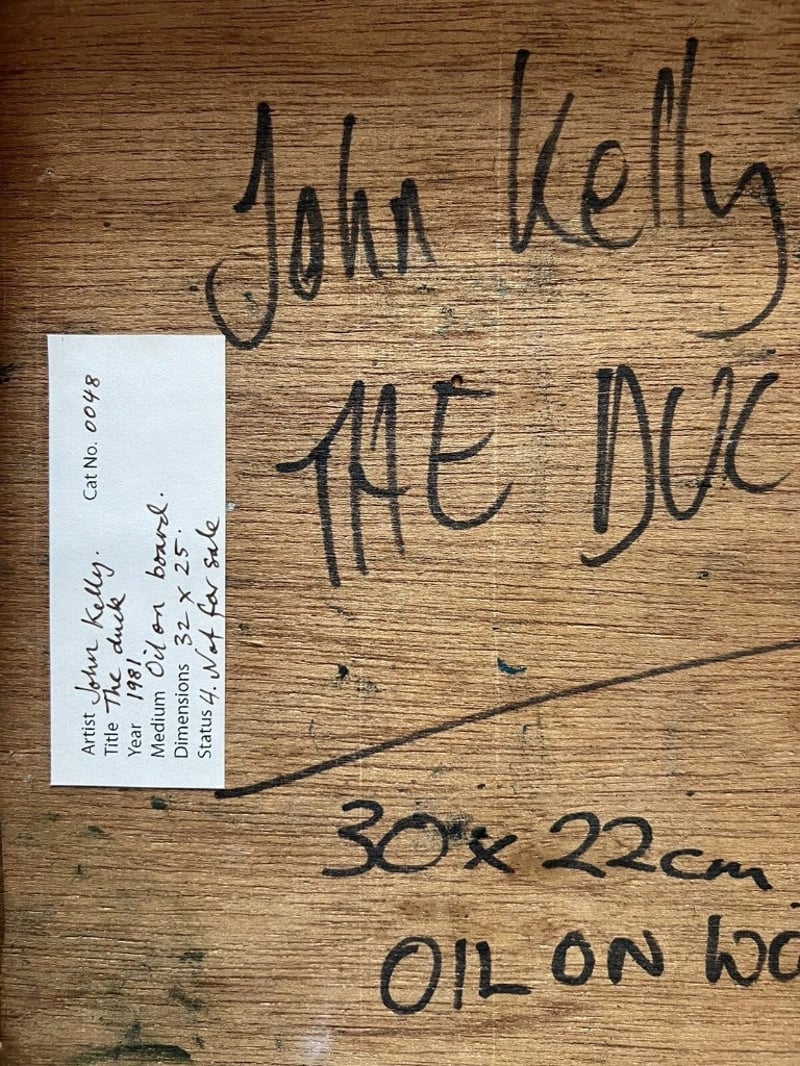 John Kelly
THE DUC
30 x 22cm
OIL ON WO
Artist John Kelly. Cat No. 0048
Title The duck
Year 1981
Medium Oil on board.
Dimensions 32 x 25.
Status 4. Not for sale